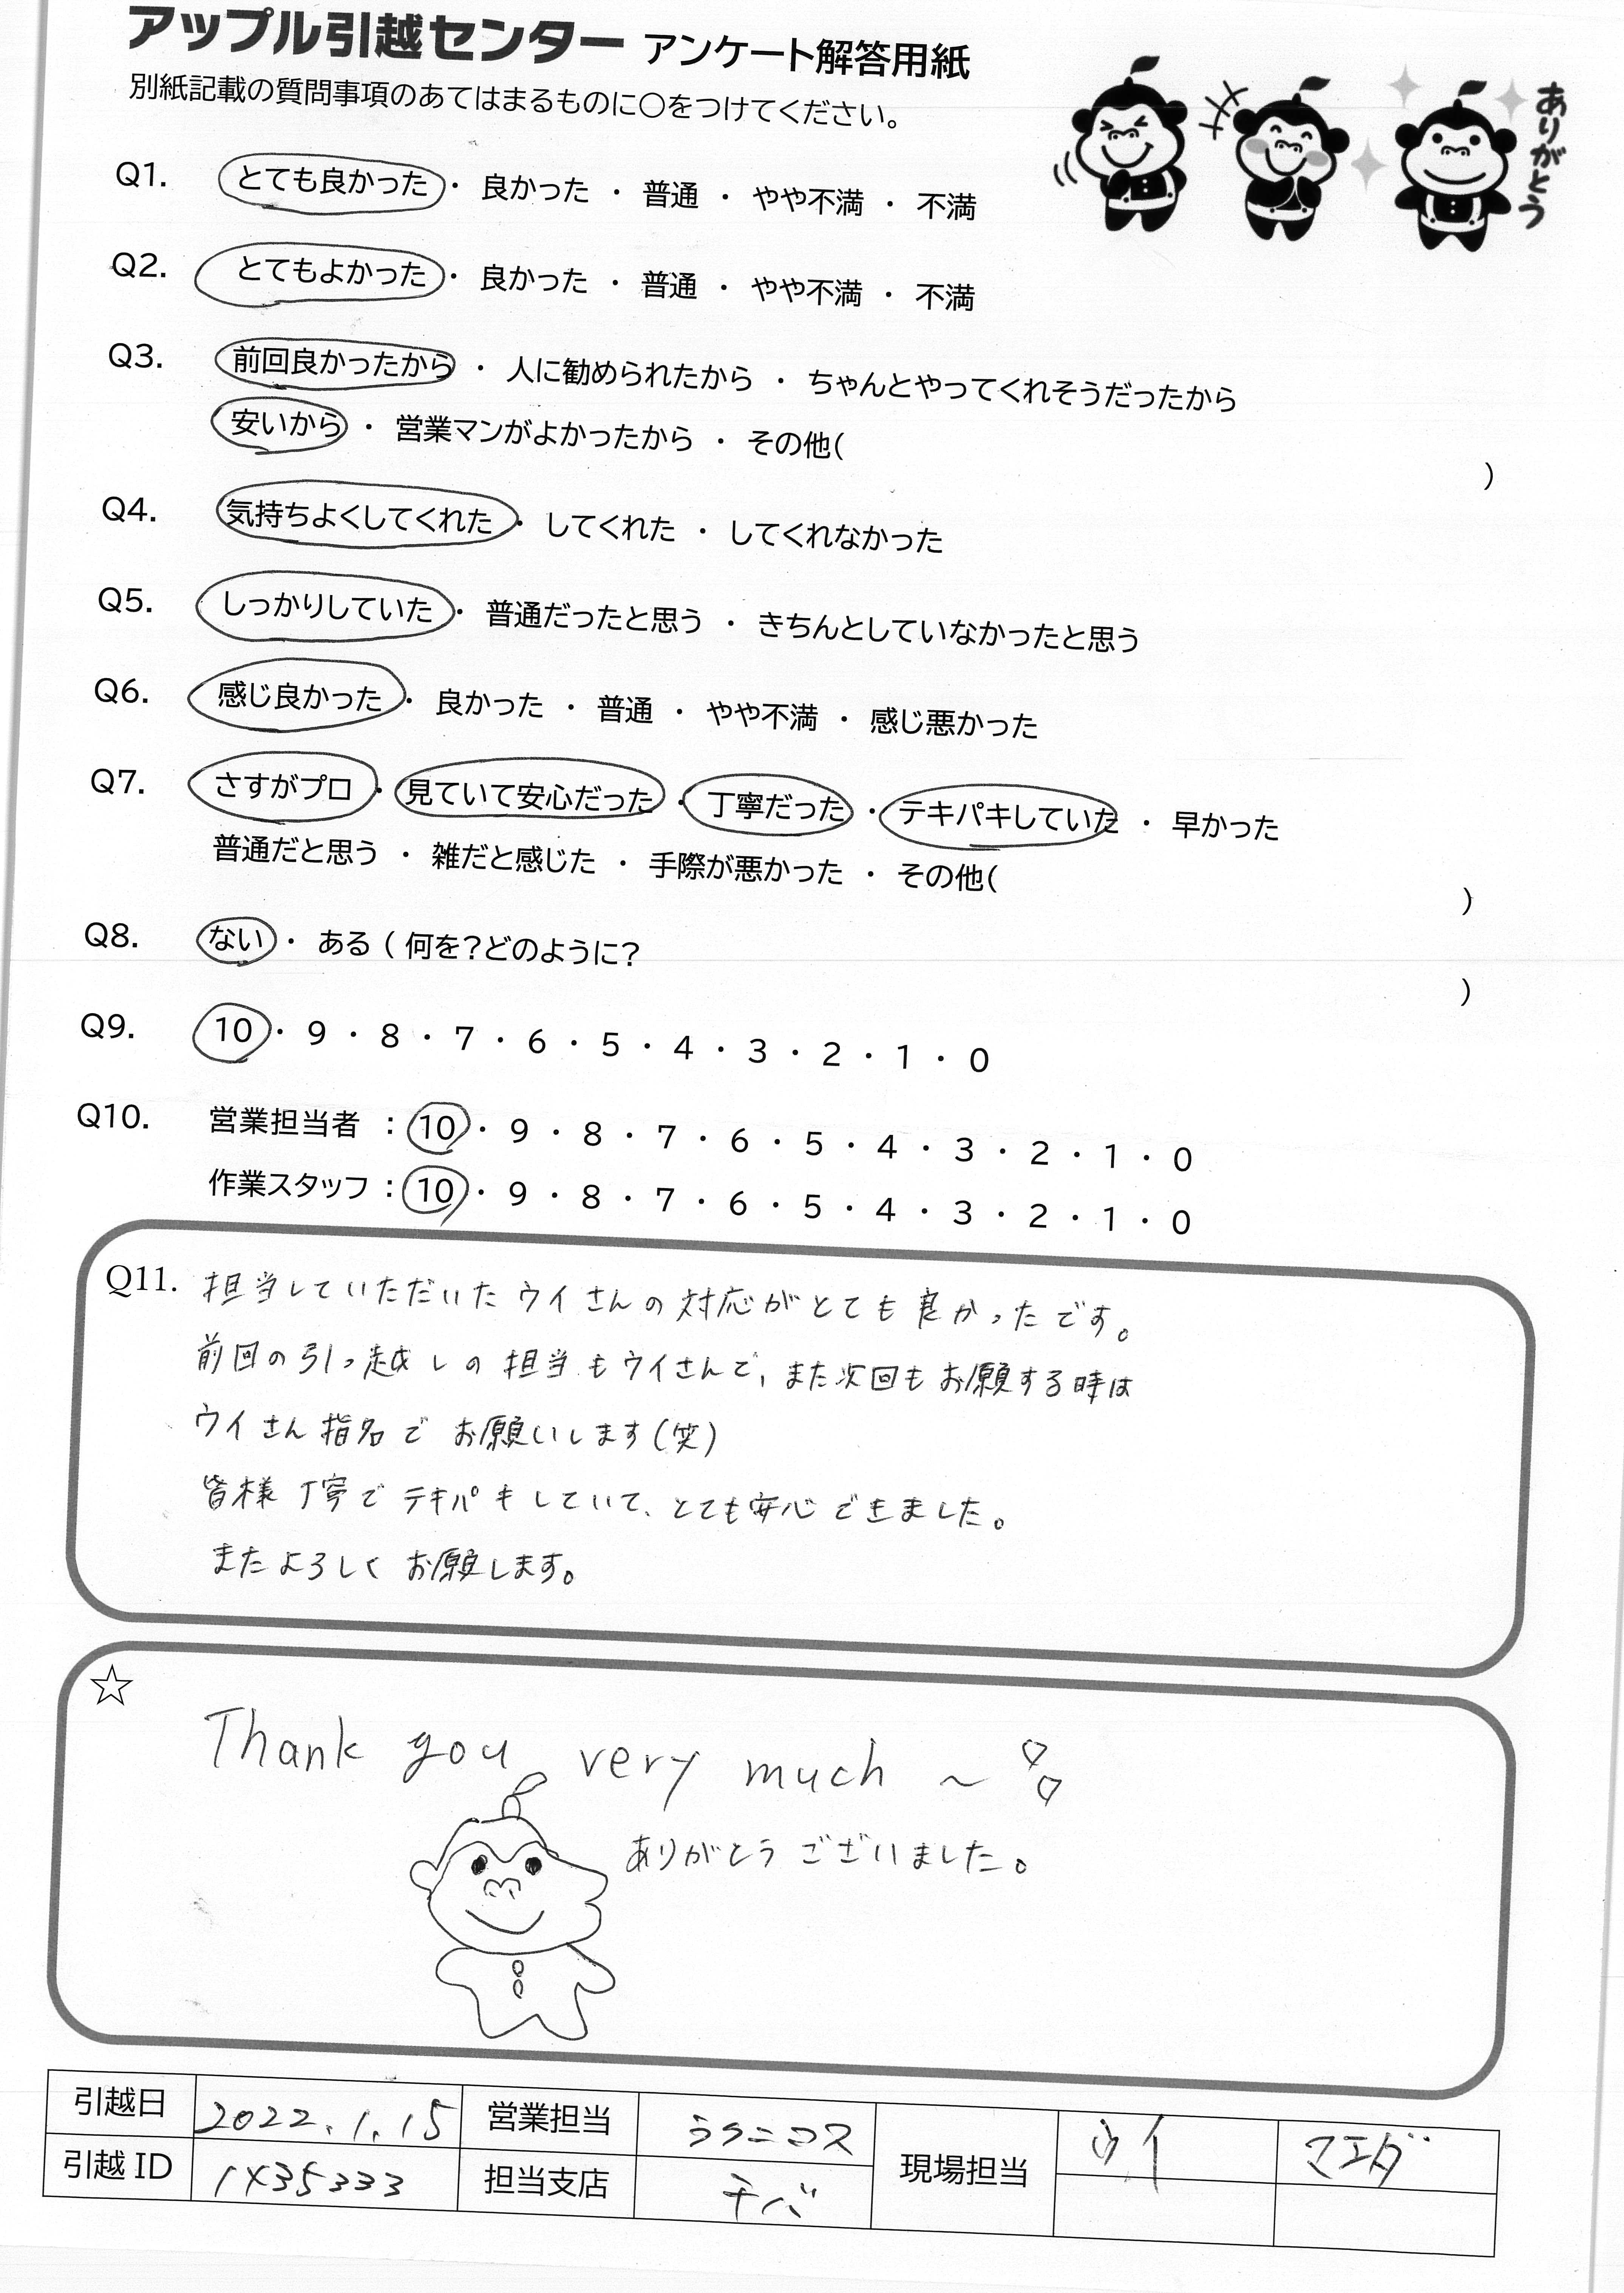 アップル引越センター アンケート解答用紙
別紙記載の質問事項のあてはまるものに○をつけてください。
ありがとう
Q1. とても良かった ・ 良かった ・ 普通 ・ やや不満 ・ 不満
Q2. とてもよかった ・ 良かった ・ 普通 ・ やや不満 ・ 不満
Q3. 前回良かったから ・ 人に勧められたから ・ ちゃんとやってくれそうだったから
安いから ・ 営業マンがよかったから ・ その他( )
Q4. 気持ちよくしてくれた ・ してくれた ・ してくれなかった
Q5. しっかりしていた ・ 普通だったと思う ・ きちんとしていなかったと思う
Q6. 感じ良かった ・ 良かった ・ 普通 ・ やや不満 ・ 感じ悪かった
Q7. さすがプロ ・ 見ていて安心だった ・ 丁寧だった ・ テキパキしていた ・ 早かった
普通だと思う ・ 雑だと感じた ・ 手際が悪かった ・ その他( )
Q8. ない ・ ある ( 何を?どのように? )
Q9. 10 ・ 9 ・ 8 ・ 7 ・ 6 ・ 5 ・ 4 ・ 3 ・ 2 ・ 1 ・ 0
Q10. 営業担当者 : 10 ・ 9 ・ 8 ・ 7 ・ 6 ・ 5 ・ 4 ・ 3 ・ 2 ・ 1 ・ 0
作業スタッフ : 10 ・ 9 ・ 8 ・ 7 ・ 6 ・ 5 ・ 4 ・ 3 ・ 2 ・ 1 ・ 0
Q11. 担当していただいたウイさんの対応がとても良かったです。
前回の引っ越しの担当もウイさんで、また次回もお願する時は
ウイさん指名でお願いします(笑)
皆様丁寧でテキパキしていて、とても安心できました。
またよろしくお願します。
☆
Thank you very much ~
ありがとうございました。
引越日 2022.1.15 営業担当 現場担当 ウイ マエダ
引越ID 1435333 担当支店 チバ